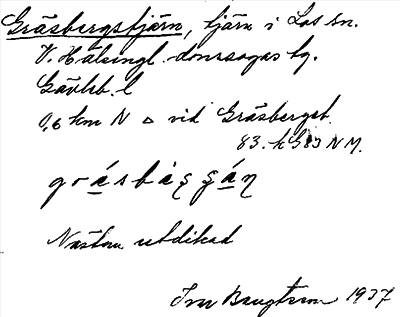 Gräsbergstjärn, tjärn i Los sn.
V. Hälsingl. domsagas tg.
Gävleb. l
0,6 km N △ vid Gräsbergsb.
83. N M.
gräsbärs
Nästan utdikad
Ivar Bengtsson 1937